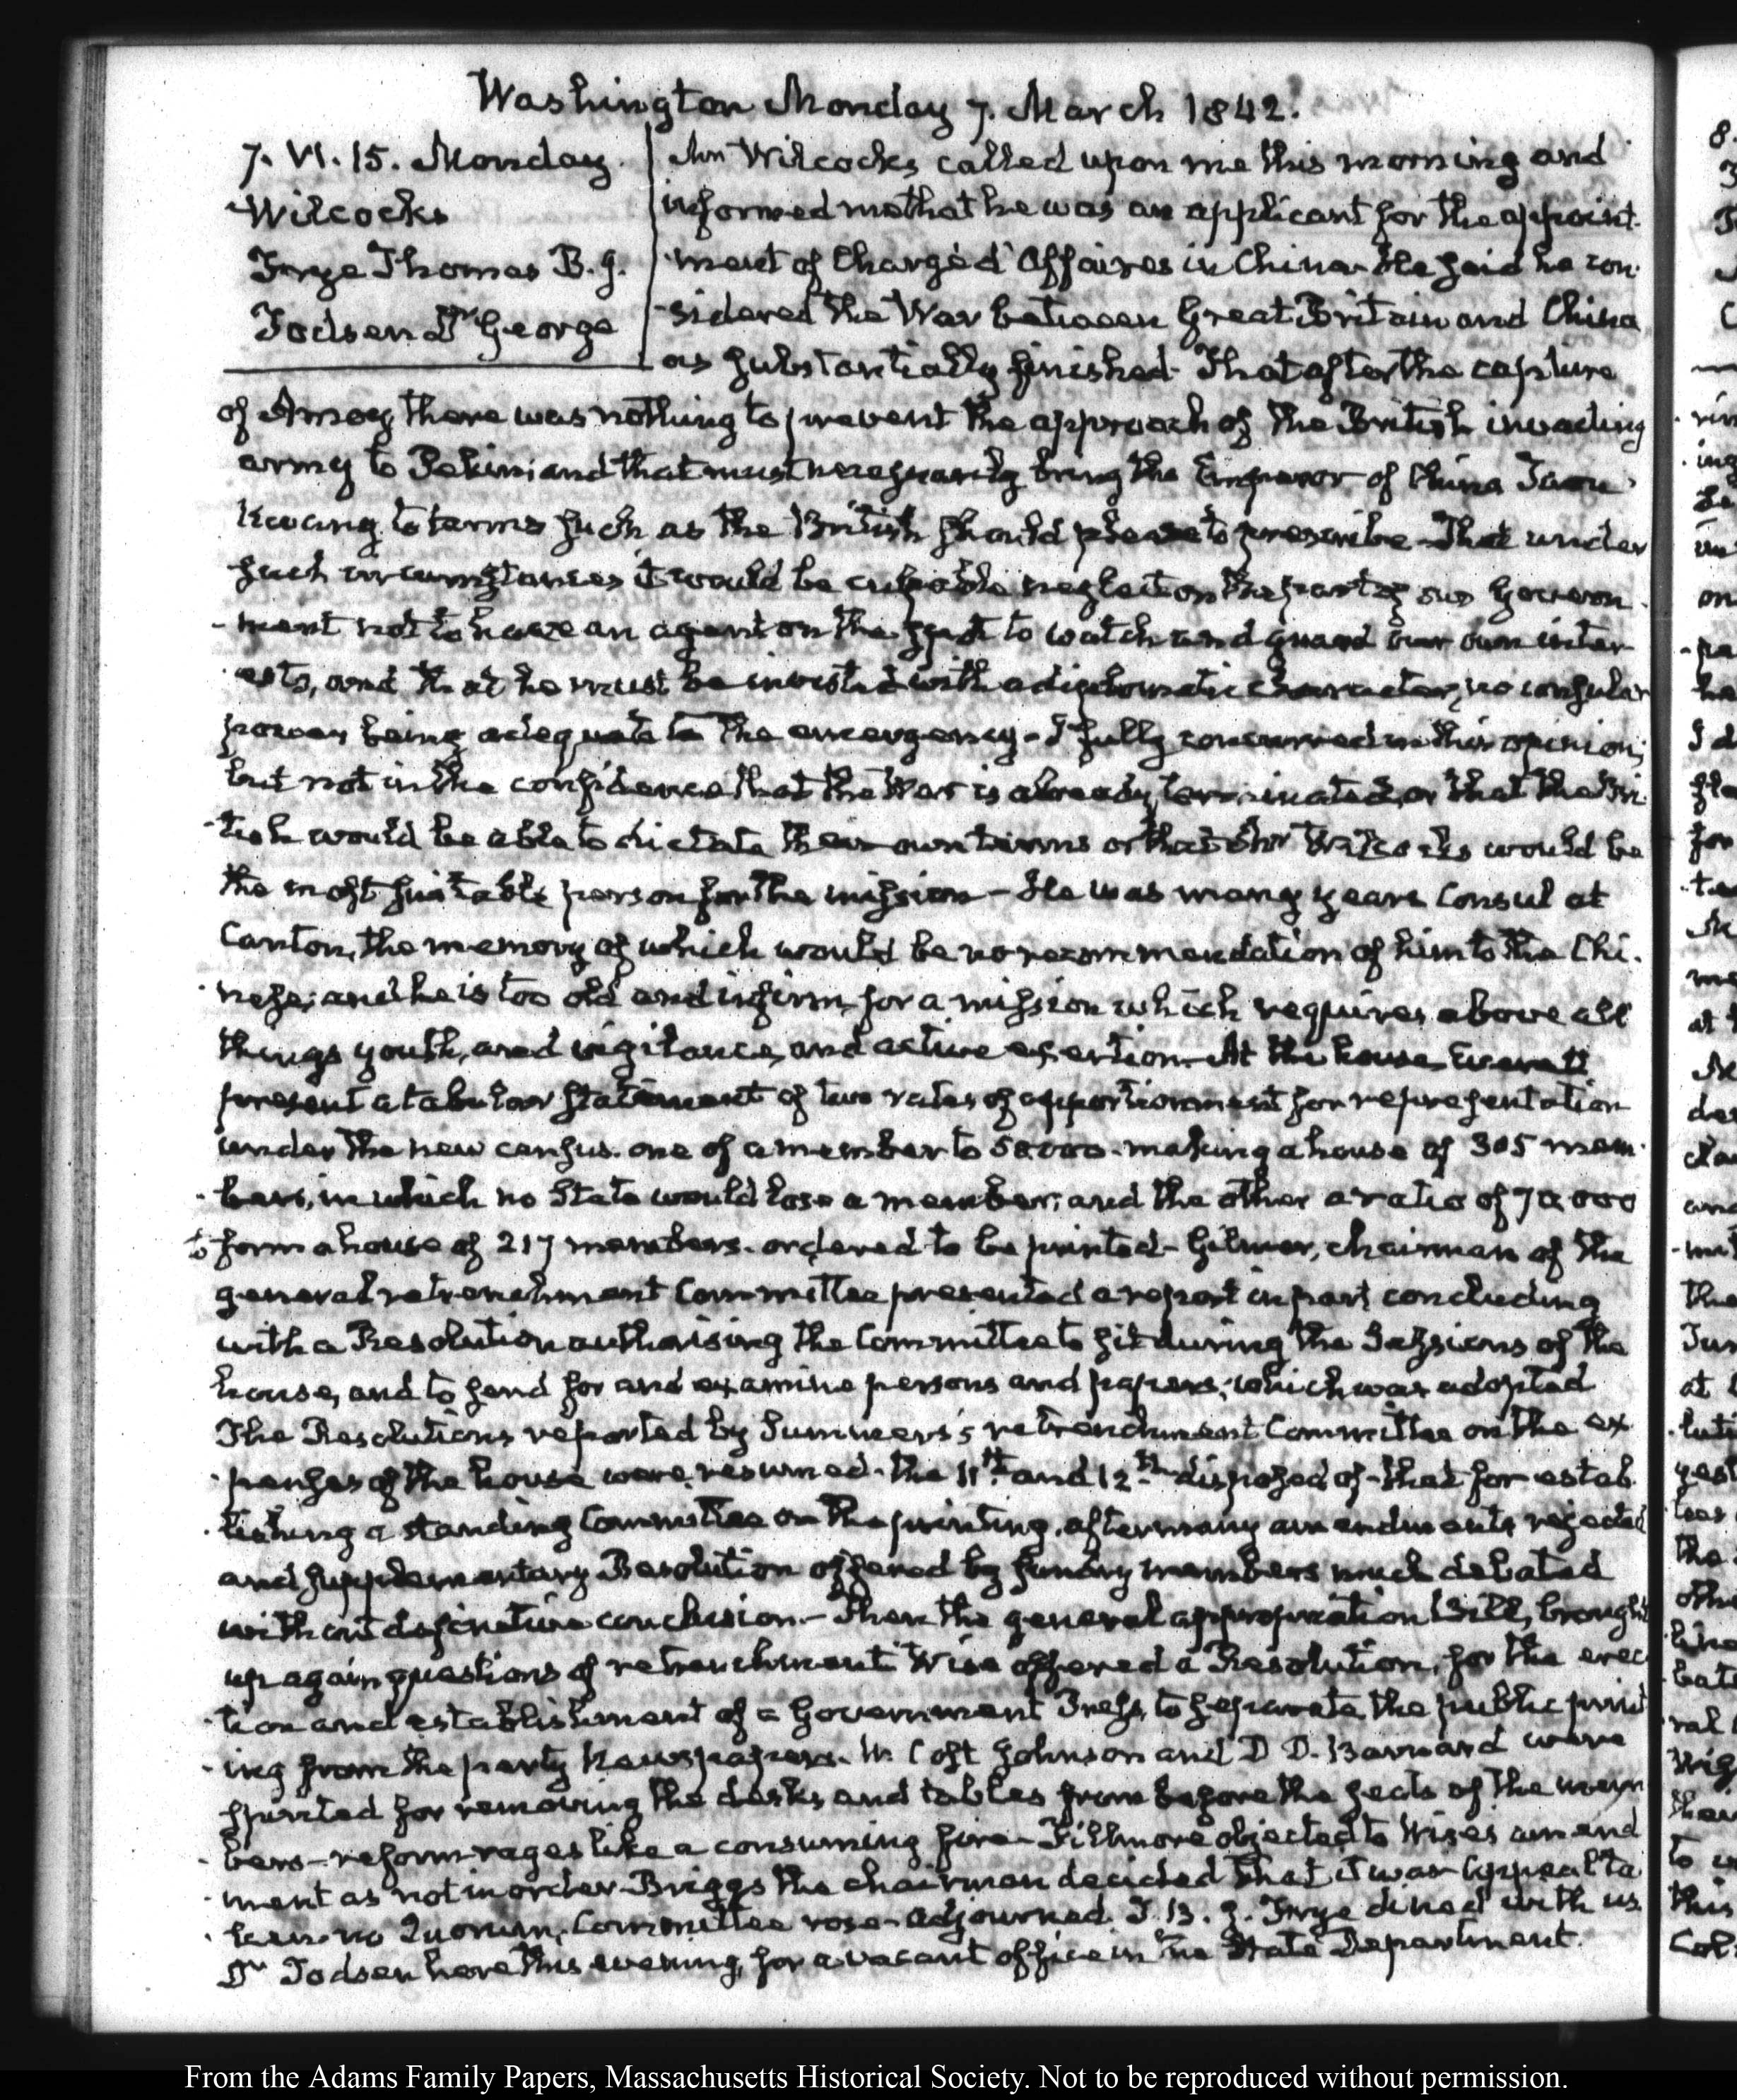 Washington Monday 7. March 1842.
7. VI. 15. Monday.
Wilcocks
Frye Thomas B. J.
Todsen Dr. George
Mr Wilcocks, called upon me this morning and
informed me that he was an applicant for the appoint-
ment of Chargé d'Affaires in China. He said he con-
sidered the War between Great Britain and China
as substantially finished. That after the capture
of Amoy there was nothing to prevent the approach of the British invading
army to Pekin; and that must necessarily bring the Emperor of China Taou
Kwang, to terms such as the British should please to prescribe. That under
such circumstances it would be culpable neglect on the part of our Govern-
ment not to have an agent on the spot to watch and guard our own inter-
ests, and that he must be invested with a diplomatic character, no consular
power being adequate to the emergency. I fully concurred in this opinion;
but not in the confidence that the War is already terminated, or that the Bri-
tish would be able to dictate their own terms or that Mr Wilcocks would be
the most suitable person for the mission - He was many years Consul at
Canton, the memory of which would be no recommendation of him to the Chi-
nese; and he is too old and infirm for a mission which requires above all
things youth, and vigilance, and active exertion. At the house Everett
present a tabular statement of two rates of apportionment for representation
under the new census. one of a member to 50000. making a house of 305 mem-
bers, in which no State would lose a member; and the other a ratio of 70,000
to form a house of 217 members. ordered to be printed - Gilmer, chairman of the
general retrenchment Committee presented a report in part concluding
with a Resolution authorising the Committee to sit during the Sessions of the
house, and to send for and examine persons and papers; which was adopted
The Resolutions reported by Summers's retrenchment Committee on the ex-
penses of the house were resumed - the 11th and 12th disposed of - that for estab-
lishing a standing Committee on the printing, after many amendments rejected
and supplementary Resolution offered by sundry members much debated
without definitive conclusion. - Then the general appropriation Bill, brought
up again questions of retrenchment Wise offered a Resolution, for the erec-
tion and establishment of a Government Press, to separate the public print-
ing from the party Newspapers. W. Cost Johnson and D. D. Barnard were
spirited for removing the desks and tables from before the seats of the mem-
bers - reform rages like a consuming fire - Fillmore objected to Wises amend-
ment as not in order Briggs the chairman decided that it was Appeal ta-
ken - no Quorum, Committee rose - adjourned. T. B. J. Frye dined with us.
Dr Todsen here this evening, for a vacant office in the State Department.
From the Adams Family Papers, Massachusetts Historical Society. Not to be reproduced without permission.